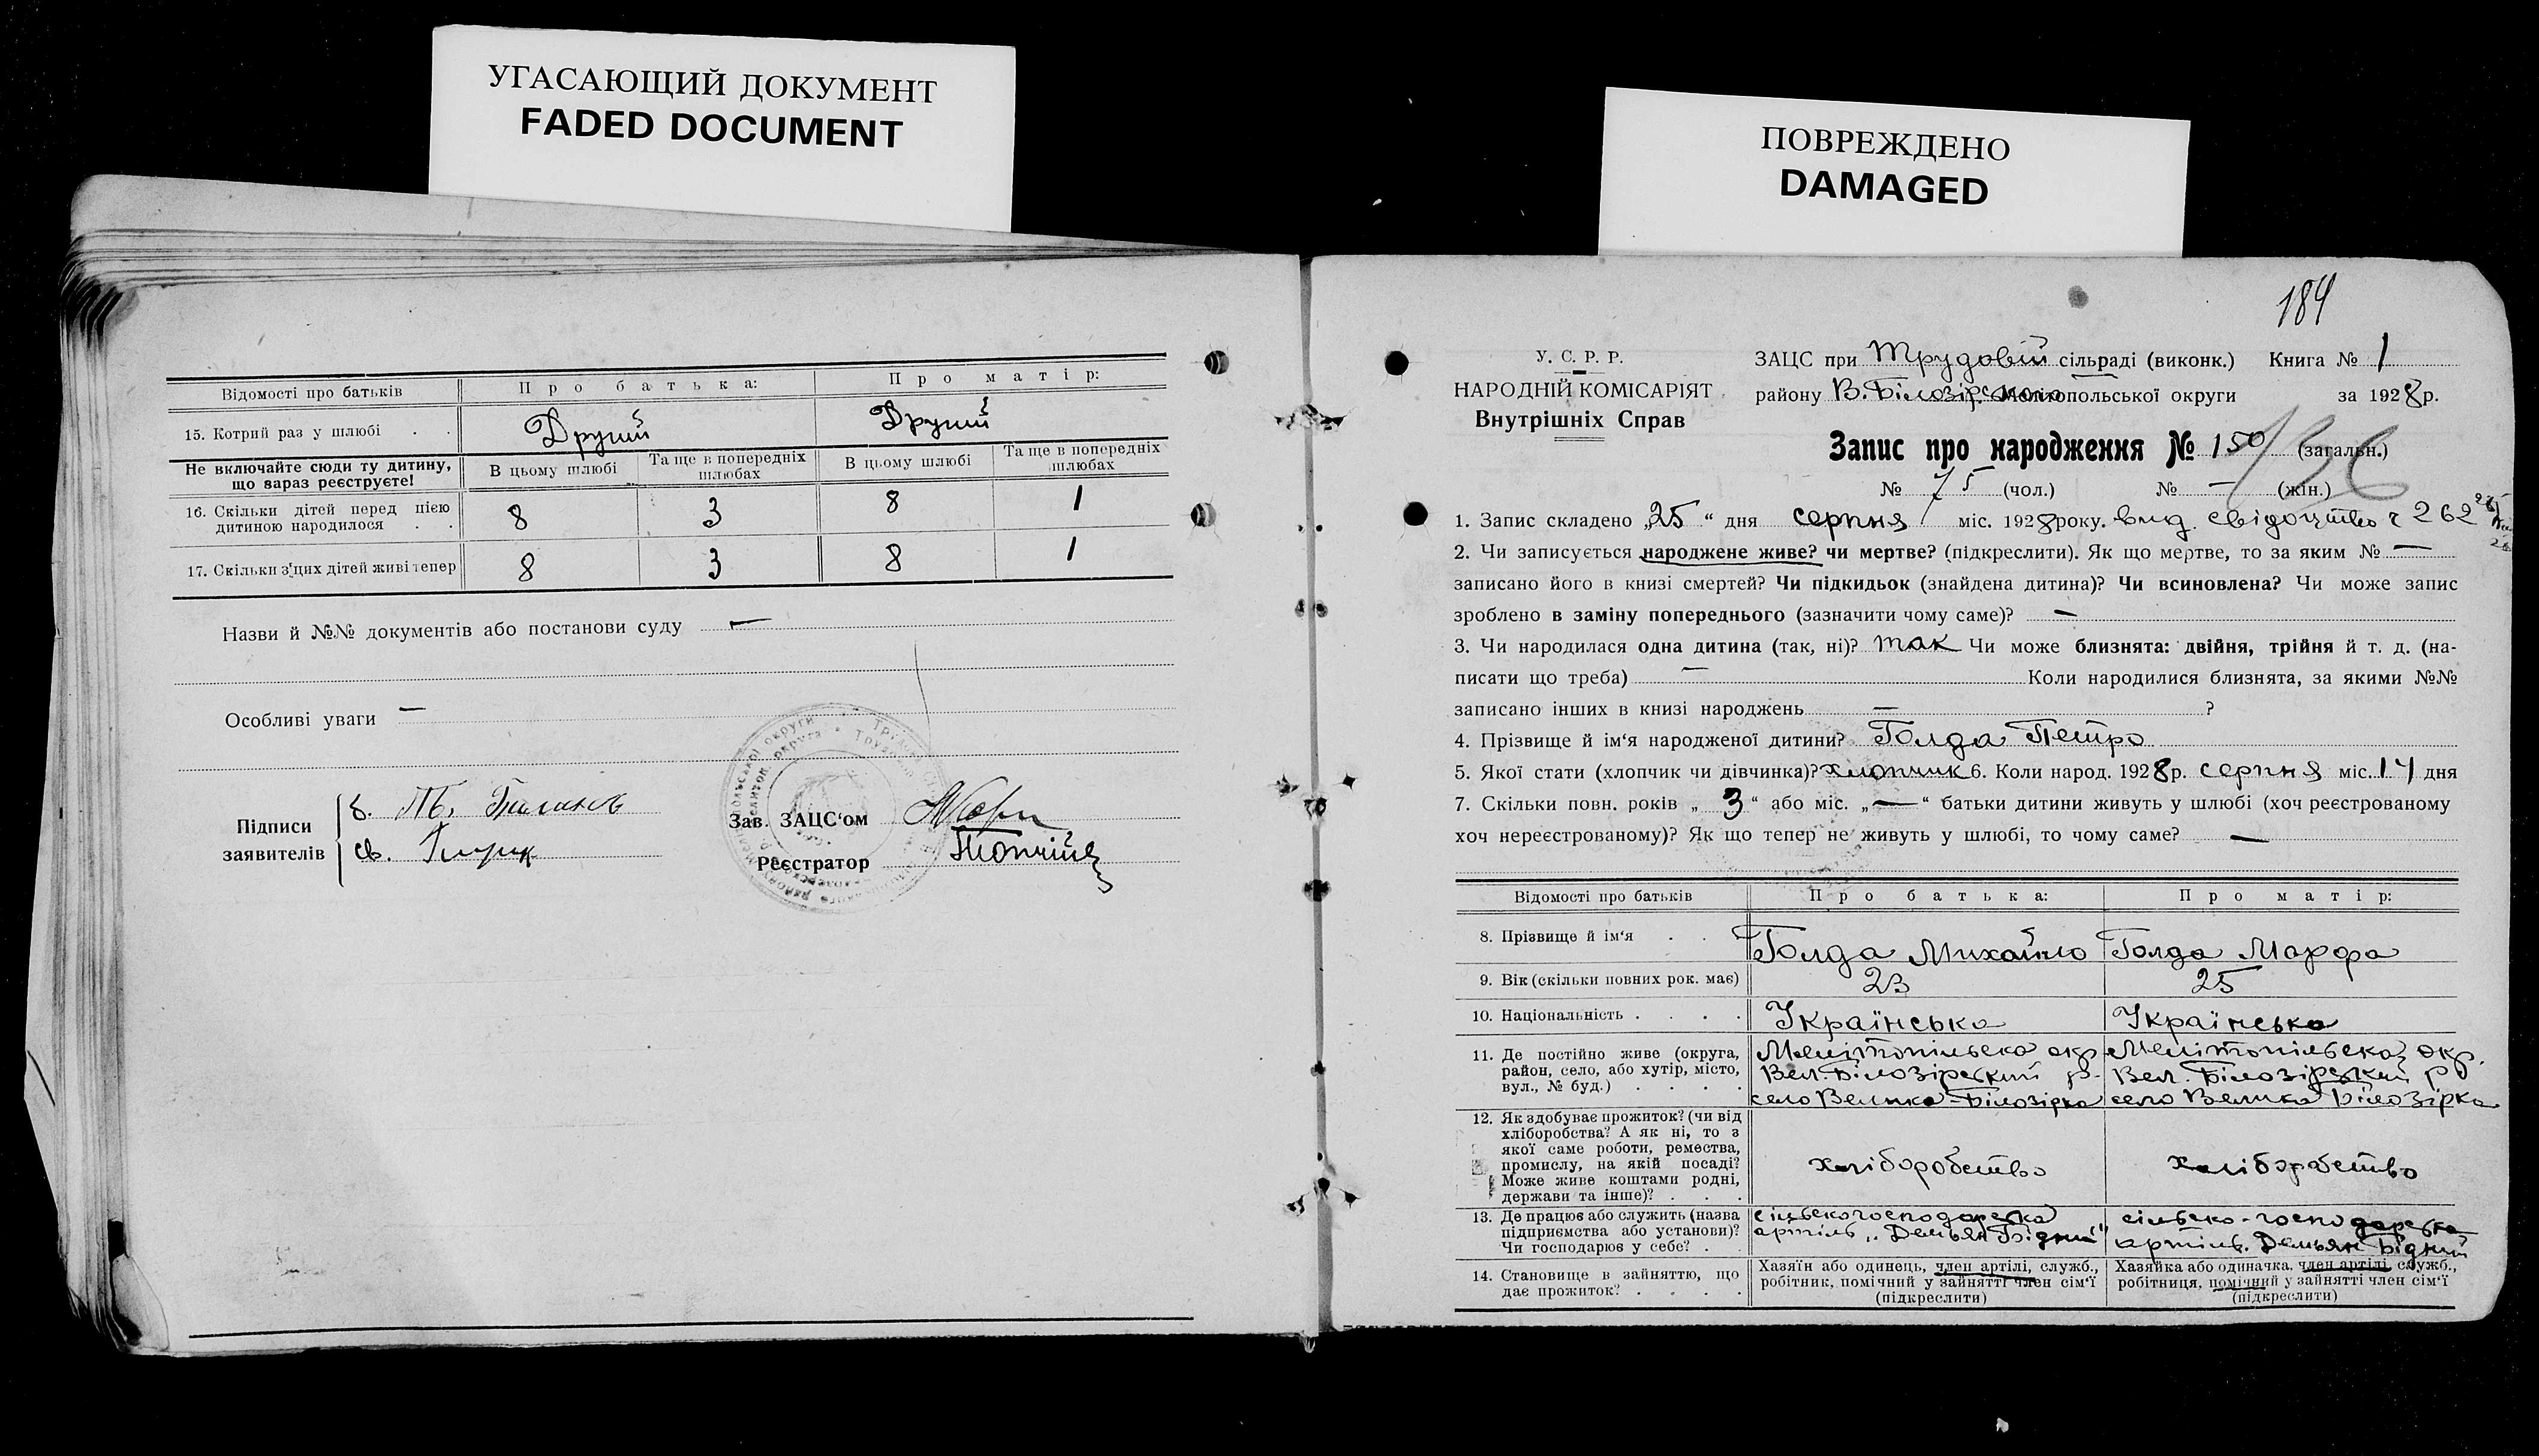 УГАСАЮЩИЙ ДОКУМЕНТ
FADED DOCUMENT
Відомості про батьків Про батька: Про матір:
15. Котрий раз у шлюбі . . Другий Другий
Не включайте сюди ту дитину, що зараз реєструєте! В цьому шлюбі Та ще в попередніх шлюбах В цьому шлюбі Та ще в попередніх шлюбах
16. Скільки дітей перед цією
дитиною народилося . . 8 3 8 1
17. Скільки з цих дітей живі тепер 8 3 8 1
Назви й №№ документів або постанови суду —
Особливі уваги —
Підписи
заявителів
б.
св.
Зав. ЗАЦС‘ом
Реєстратор
ПОВРЕЖДЕНО
DAMAGED
184
У. С. Р. Р.
НАРОДНІЙ КОМІСАРІЯТ
Внутрішніх Справ
ЗАЦС при Трудовій сільраді (виконк.) Книга № 1
району В. Білозірського Мелітопольської округи за 1928 р.
Запис про народження № 150 (загальн.)
136
№ 75 (чол.) № — (жін.)
1. Запис складено „25“ дня серпня міс. 1928 року. вид. свідоцтво 262
2. Чи записується народжене живе? чи мертве? (підкреслити). Як що мертве, то за яким № —
записано його в книзі смертей? Чи підкидьок (знайдена дитина)? Чи всиновлена? Чи може запис
зроблено в заміну попереднього (зазначити чому саме)? —
3. Чи народилася одна дитина (так, ні)? так Чи може близнята: двійня, трійня й т. д. (на-
писати що треба) — Коли народилися близнята, за якими №№
записано інших в книзі народжень — ?
4. Прізвище й ім‘я народженої дитини? Голда Петро
5. Якої стати (хлопчик чи дівчинка)? хлопчик 6. Коли народ. 1928 р. серпня міс. 14 дня
7. Скільки повн. років „3“ або міс. „—“ батьки дитини живуть у шлюбі (хоч реєстрованому
хоч нереєстрованому)? Як що тепер не живуть у шлюбі, то чому саме? —
Відомості про батьків Про батька: Про матір:
8. Прізвище й ім‘я . . Голда Михайло Голда Марфа
9. Вік (скільки повних рок. має) 23 25
10. Національність . . . . Українська Українська
11. Де постійно живе (округа,
район, село, або хутір, місто,
вул., № буд.) . . . .
Мелітопільська окр
Вел. Білозірський р.
село Велика-Білозірка
Мелітопільська окр.
Вел. Білозірський р.
село Велика Білозірка
12. Як здобуває прожиток? (чи від
хліборобства? А як ні, то з
якої саме роботи, ремества,
промислу, на якій посаді?
Може живе коштами родні,
держави та інше)? . . .
хліборобство хліборобство
13. Де працює або служить (назва
підприємства або установи)?
Чи господарює у себе? . .
сільскогосподарська
артіль „Демьян Бідний"
сільско-господарська
артіль. Демьян Бідний
14. Становище в зайняттю, що
дає прожиток? . . . .
Хазяїн або одинець, член артілі, служб.,
робітник, помічний у зайнятті член сім‘ї
(підкреслити)
Хазяйка або одиначка, член артілі, служб.,
робітниця, помічний у зайнятті член сім‘ї
(підкреслити)